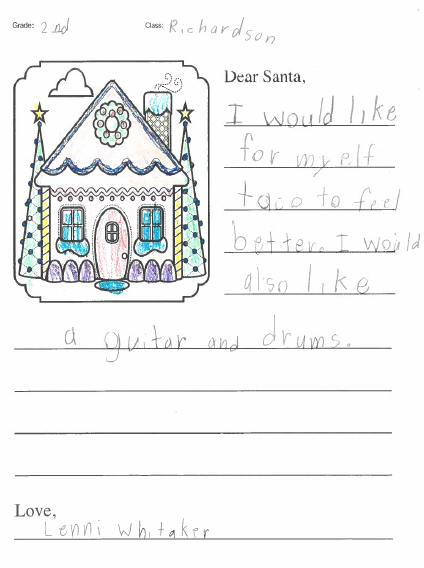 Grade: 2nd Class: Richardson
Dear Santa,
I would like
for my elf
taco to feel
better. I would
also like
a guitar and drums.
Love,
Lenni Whitaker